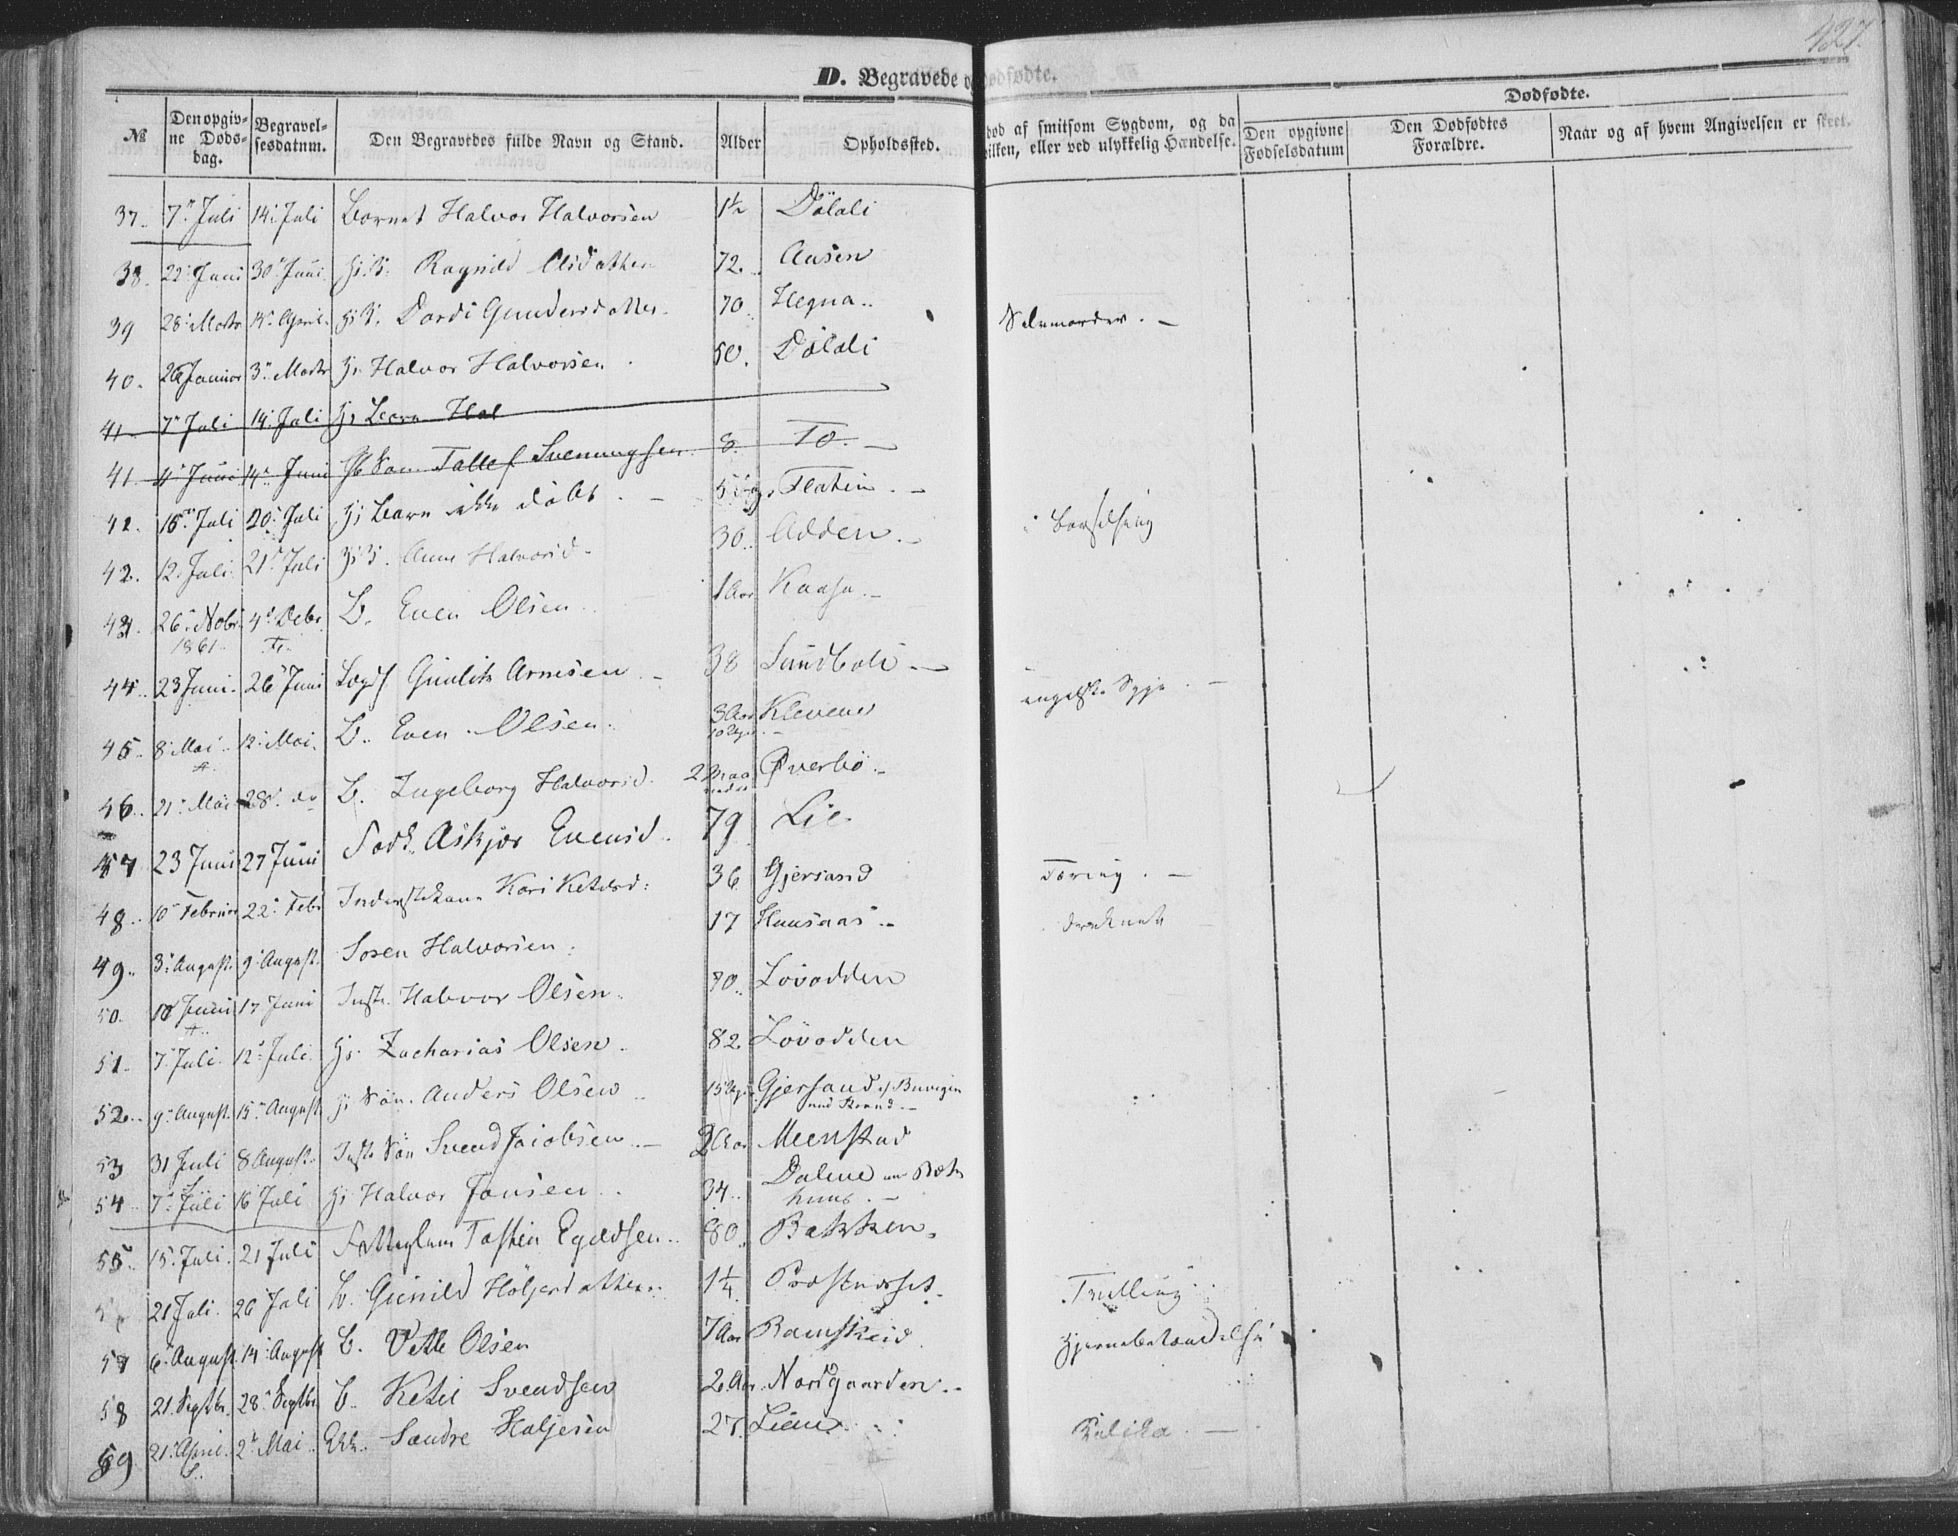 427.
D. Begravede og Dødfødte.
№ Den opgivne Dødsdag. Begravelsesdatum. Den Begravedes fulde Navn og Stand. Alder Opholdssted. død af smitsom Sygdom, og da hvilken, eller ved ulykkelig Hændelse. Dødfødte.
Den opgivne Fødselsdatum Den Dødfødtes Forældre. Naar og af hvem Angivelsen er skeet.
37. 7 Juli 14 Juli Barnet Halvor Halvorsen 1½ Dölali
38. 22 Juni 30 Juni Ragnild Olsdatter 72. Aasen
39 28 Marts 14 April Dordi Gundersdatter 70 Hegna Selvmorder. —
40. 26 Januar 3 Marts Halvor Halvorsen 50. Dölali
41. 7 Juli 14 Juli Barn Hal
41. 4 Juni 14 Juni Søn Tallef Svenungsen 8. To. —
42. 15 Juli 20 Juli Barn ikke döbt. — Flatin. —
42. 12. Juli 21 Juli Anne Halvorsd. 30. Odden. — i Barselseng
43. 26 Novbr. 1861 4 Debr. B. Even Olsen 1 Aar Kaasa. —
44. 23 Juni. 26 Juni Lægds Gunlik Arnesen — 38 Sundboli. —
45. 8 Mai 12 Mai. B. Even Olsen. 3 Aar Klevene engelske Syge. —
46. 21 Mai 28. do B. Ingeborg Halvorsd. 2 Maaneder Øverbö.
47 23 Juni 27 Juni Födk. Askjer Evensd. 79 Lie.
48. 10 Februar 22 Febr Inderstekone Kari Ketilsd: 36 Gjersand Tæring. —
49. 3 August. 9 August. Soren Halvorsen. 17 Haasaas druknet
50. 10 Juni 17 Juni Inste. Halvor Olsen. 70. Lövodden
51. 7 Juli. 12 Juli. Zacharias Olsen. 82. Lövodden
52. 9 August. 15 August Søn. Anders Olsen 15 Uger Gjersand
53 31 Juli 8 August. Inste Søn Svend Jacobsen. — 2 Aar Meenstad
54. 7 Juli 16 Juli Halvor Jansen. 34. Dalene
55. 15. Juli. 21 Juli Tosten Egildsen. 80. Bakken.
21 Juli. 26 Juli B. Gunild Höljersdatter. 1¼ Præstenæset Trilling
57 6 August. 14 August B. Vetle Olsen 7 Aar Ramskeid Hjernebetændelse
58 21. Septbr. 28 Septbr. B. Ketil Svendsen 2 Aar. Nordgaarden. —
59 21 April. 2 Mai Ekk. Sondre Haljesen 27. Liene Kolika. —